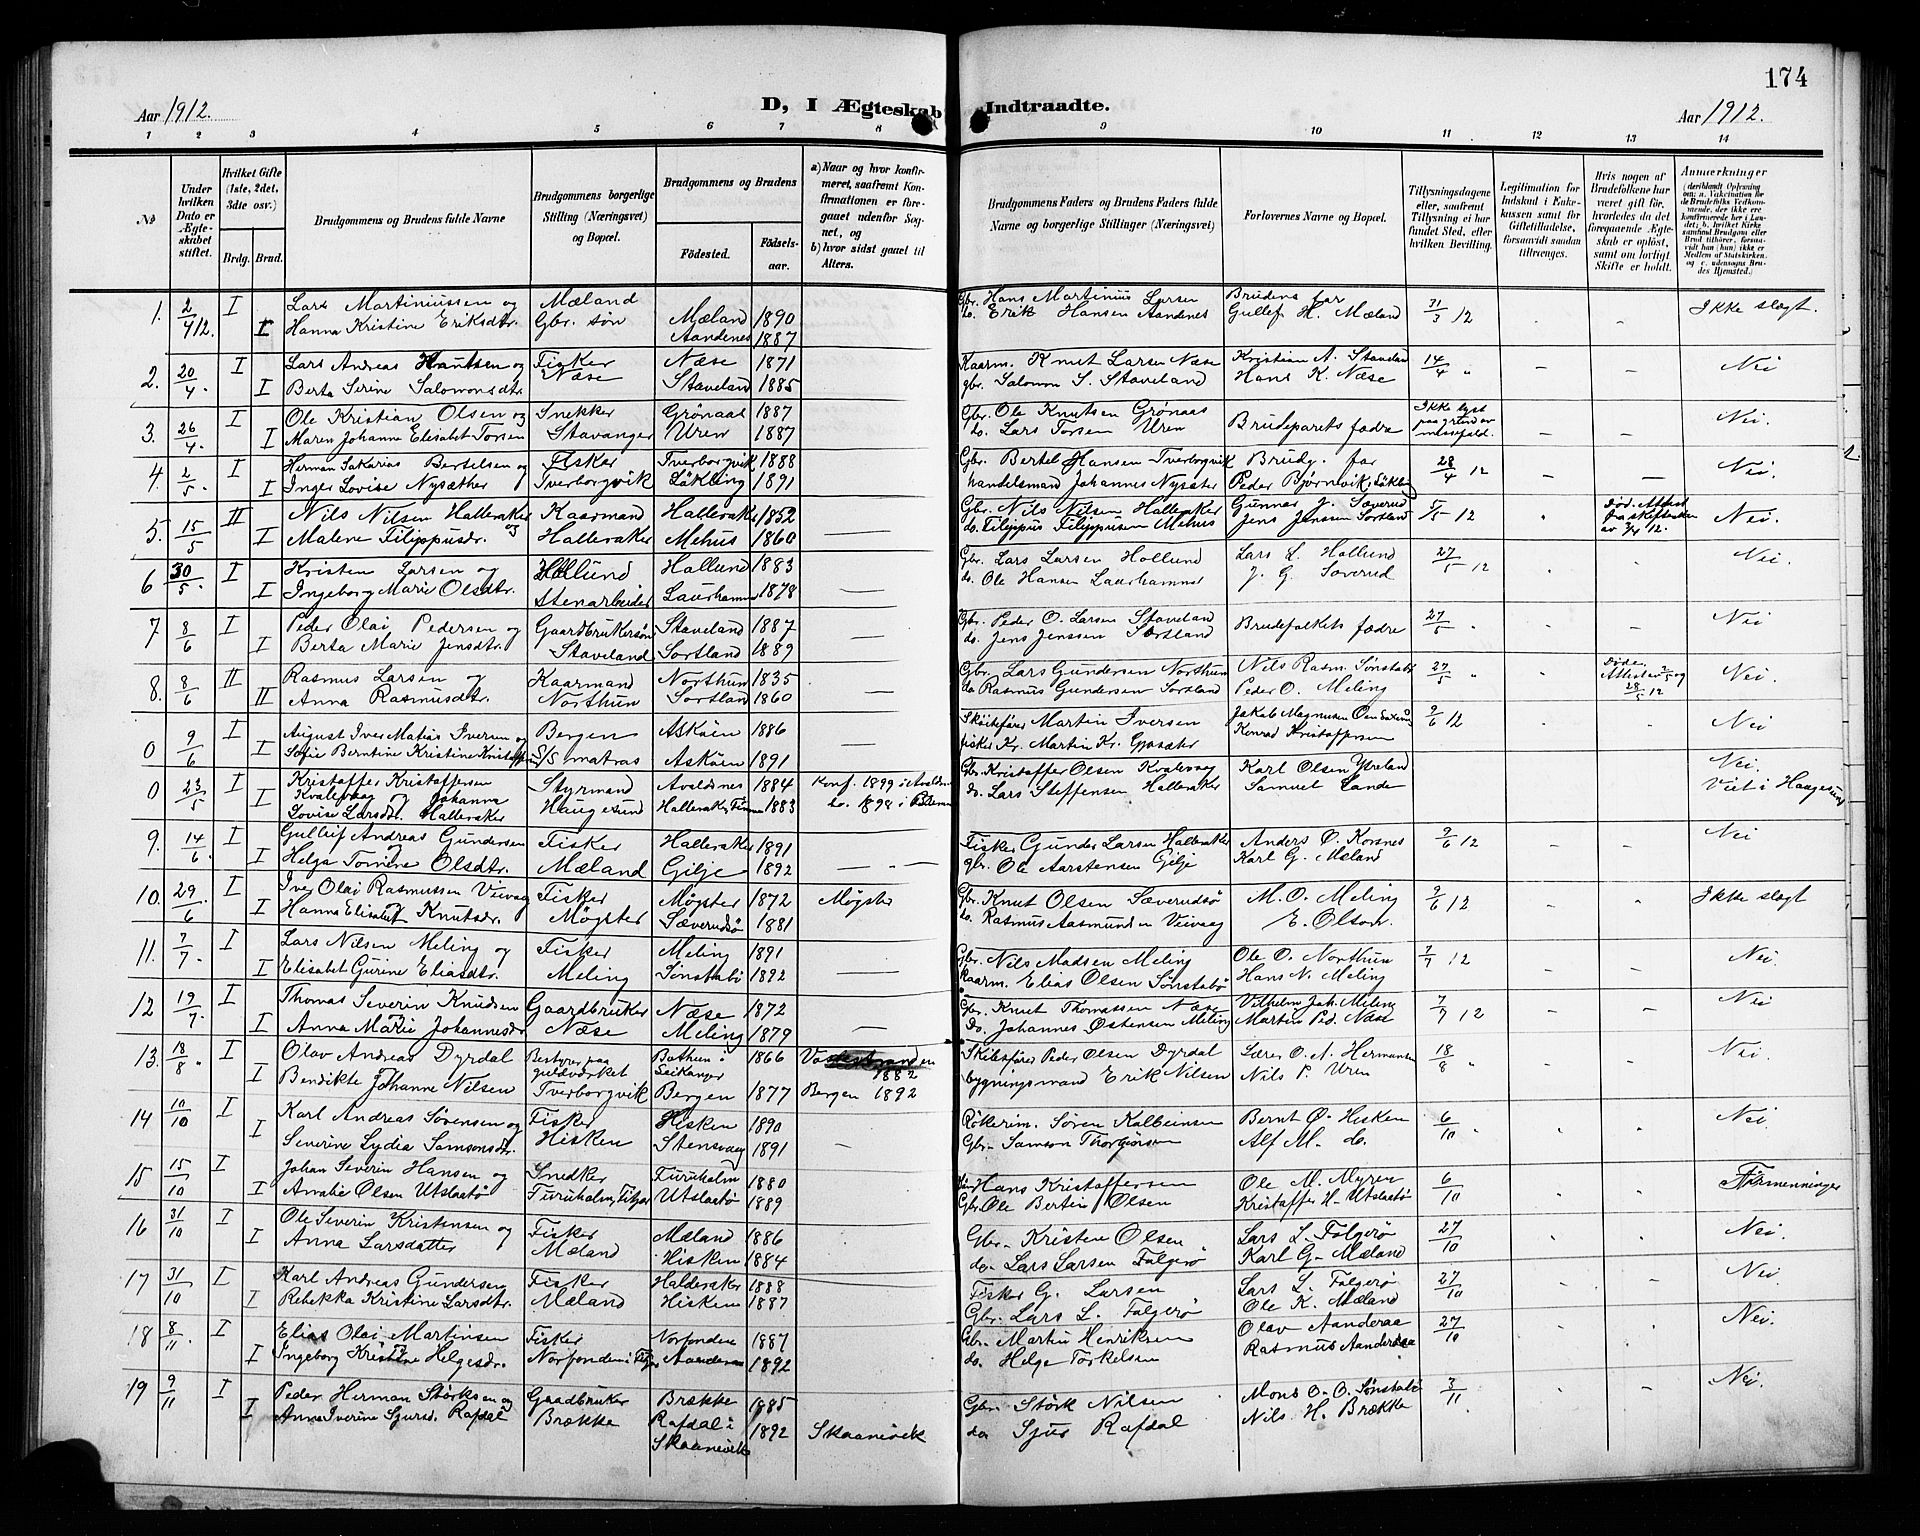 174
Aar 1912.
D, I Ægteskab Indtraadte.
Aar 1912.
1 2 3 4 5 6 7 8 9 10 11 12 13 14
No
Under hvilken Dato er Ægteskabet stiftet.
Hvilket Gifte (1ste, 2det, 3dte osv.)
Brdg. Brud.
Brudgommens og Brudens fulde Navne
Brudgommens borgerlige Stilling (Næringsvei) og Bopæl.
Brudgommens og Brudens
Fødested. Fødselsaar.
a) Naar og hvor konfirmeret, saafremt Konfirmationen er foregaaet udenfor Sognet, og
b) hvor sidst gaaet til Alters.
Brudgommens Faders og Brudens Faders fulde Navne og borgerlige Stillinger (Næringsvei)
Forlovernes Navne og Bopæl.
Tillysningsdagene eller, saafremt Tillysning ei har fundet Sted, efter hvilken Bevilling.
Legitimation for Indskud i Enkekassen samt for Giftetilladelse, forsaavidt saadan tiltrænges.
Hvis nogen af Brudefolkene har været gift før, hvorledes da det foregaaende Ægteskab er opløst, samt om lovligt Skifte er holdt.
Anmærkninger
1. 2/4 12. I Lars Martiniussen og Mæland Mæland 1890 Gbr. Hans Martinius Larsen Brudens far 31/3 12 Ikke slegt.
I Hanna Kristine Eriksdtr. Gbr. søn Aandenes 1887 do. Erik Hansen Aandenes Gullef H. Mæland
2. 20/4. I Lars Andreas Knutsen og Fisker Næse 1871 Kaarm. Knut Larsen Næse Kristian A. Staveland 14/4 " Nei
I Berta Serine Salomonsdtr Næse Staveland 1885 gbr. Salomon S. Staveland Hans K. Næse
3. 26/4. I Ole Kristian Olsen og Snekker Grønaas 1887 Gbr. Ole Knutsen Grønaas Ikke lyst paa grund av messefald. Nei
I Maren Johanne Elisabet Torsen Stavanger Uren 1887 do. Lars Torsen Uren Brudeparets fædre
4. 2/5. I Herman Sakarias Bertelsen og Fisker Tverborgvik 1888 Gbr. Bertel Hansen Tverborgvik Brudg. far 28/4 12 Nei.
I Inger Lovise Nysæther Tverborgvik Løkling 1891 handelsmand Johannes Nysæter Peder Bjørnevik, Løkling
5. 15/5 II Nils Nilsen Halleraker og Kaarmand Halleraker 1852 Gbr. Nils Nilsen Halleraker Gunnar J. Sæverud 5/5 12 Nei.
I Malene Filippusdr. Halleraker Mehus 1860 do. Filippus Filippusen Mehus Jens Jensen Sortland
6 30/5. I Kristen Larsen og Hollund Hallund 1883 Gbr. Lars Larsen Hollund Lars L. Hollund 27/5 12 Nei.
I Ingeborg Marie Olsdtr. Stenarbeider Laurhammer 1878 do. Ole Hansen Laurhammer J. G. Soverud
7 8/6 I Peder Olai Pedersen og Gaardbrukersøn Staveland 1887 Gbr. Peder O. Larsen Staveland Brudefolkets fædre 27/5 " Nei
I Berta Marie Jensdtr. Staveland Sortland 1889 do. Jens Jenssen Sortland
8. 8/6 II Rasmus Larsen og Kaarmand Northun 1835 Gbr. Lars Gundersen Northun Nils Rasm. Sønstabø 27/5 " Nei.
II Anna Rasmusdtr. Northun Sortland 1860 do Rasmus Gundersen Sortland Peder O. Meling
0 9/6 I August Iver Matias Iversen og Bergen Askøen 1886 Skøitefører Martin Iversen 2/6 12 Nei
I Sofie Berntine Kristine S/S matros Askøen 1891 fisker Kr. Martin Kr. Gjøsæter Konrad Kristoffersen
0 23/5 I Kristoffer Kristoffersen Kvalevaag og Styrmand Avaldsnes 1884 Konf. 1899 i Gbr. Kristoffer Olsen Kvalevaag Karl Olsen Ytreland Nei. Viet i Haugesund
I Johanna Lovise Larsdtr. Halleraker Haugesund Halleraker 1883 do. 1898 i do. Lars Steffensen Halleraker Samuel Lande
9. 14/6. I Gulleif Andreas Gundersen Fisker Halleraker 1891 Fisker Gunder Larsen Halleraker Anders O. Korsnes 2/6 12 Nei
I Helga Tomine Olsdtr. Mæland Gilje 1892 gbr. Ole Aarstensen Gilje Karl G. Mæland
10. 29/6 I Iver Olai Rasmussen Veivaag Fisker Møgster 1872 Møgster Gbr. Knut Olsen Sæverudsø M. O. Meling 2/6 12 Ikke slegt
I Hanna Elisabet Knutsdr. Møgster Sæverudsø 1881 do. Rasmus Aasmunden Veivaag E. Olson.
11. 7/7. I Lars Nilsen Meling og Fisker Meling 1891 Gbr. Nils Madsen Meling Ole O. Northun 7/7 12 Nei.
I Elisabet Gurine Eliasdtr. Meling Sønstabø 1892 Kaarm. Elias Olsen Sønstabø Hans N. Meling
12 19/7. I Thomas Severin Knudsen Gaardbruker Næse 1872 Gbr. Knut Thomassen Næse Vilhelm Joh. Meling 7/7 12 Nei
I Anna Marie Johannesdr. Næse Meling 1879 do. Johannes Østensen Meling Martin Ped. Næse
13. 18/8 " I Olav Andreas Dyrdal Bestyrer paa guldverket 1866 1882 Skibsfører Peder Olsen Dyrdal Lærer O. A. Hermansen 18/8 Nei.
I Bendikte Johanne Nilsen Tverborgvik Bergen 1877 Bergen 1892 bygningsmand Erik Nilsen Nils P. Uren
14 10/10 I Karl Andreas Sørensen og Fisker Hisken 1890 Søren Kolbeinsen Bernt O. Hisken 6/10 " Nei
I Severine Lydia Samsonsdr. Hisken Stensvaag 1891 Gbr. Samson Thorgjørsen Alf M. do.
15 15/10 I Johan Severin Hansen og Snedker Furuholm 1880 Hans Kristoffersen Ole M. Myren 6/10 Firmenninger
I Amalie Olsen Utslaatø Furuholm, Fitjar Utslaatø 1889 Gbr. Ole Bertin Olsen Kristoffer H. Utslaatø
16 31/10 I Ole Severin Kristensen og Fisker Mæland 1886 Gbr. Kristen Olsen Lars L. Folgerø 27/10 Nei.
I Anna Larsdatter Mæland Hisken 1884 do. Lars Larsen Folgerø Karl G. Mæland
17 31/10 I Karl Andreas Gundersen Fisker Halderaker 1888 Fisker G. Larsen Lars L. Folgerø 27/10 Nei.
I Rebekka Kristine Larsdtr. Mæland Hisken 1887 Gbr. Lars L. Folgerø Ole K. Mæland
18 8/11. I Elias Olai Martinsen Fisker Norfondene 1887 Gbr. Martin Henriksen Olav Aanderaa 27/10 Nei.
I Ingeborg Kristine Helgesdr. Norfonden i Fitjar Aanderaa 1892 do. Helge Torkelsen Rasmus Aanderaa
19 9/11 I Peder Herman Størksen og Gaadbruker Brække 1885 Gbr. Størk Nilsen Mons O. O. Sønstabø 3/11. Nei.
I Anna Iverine Sjursd. Rafdal Brække Rafdal i Skaanevik 1892 Skaanevik do Sjur Rafdal Nils H. Brække